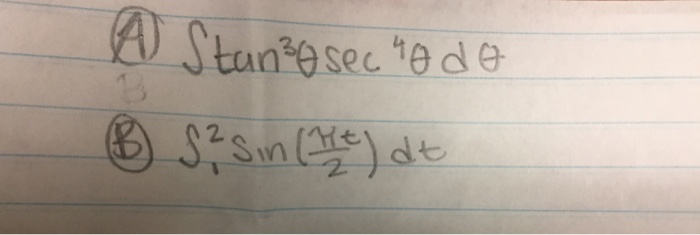 (A) ∫tan³θ sec⁴θ dθ
B
(B) ∫₁² sin(πt/2) dt